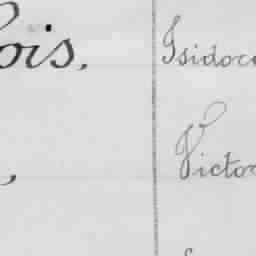 ois. Isidor
, Victor